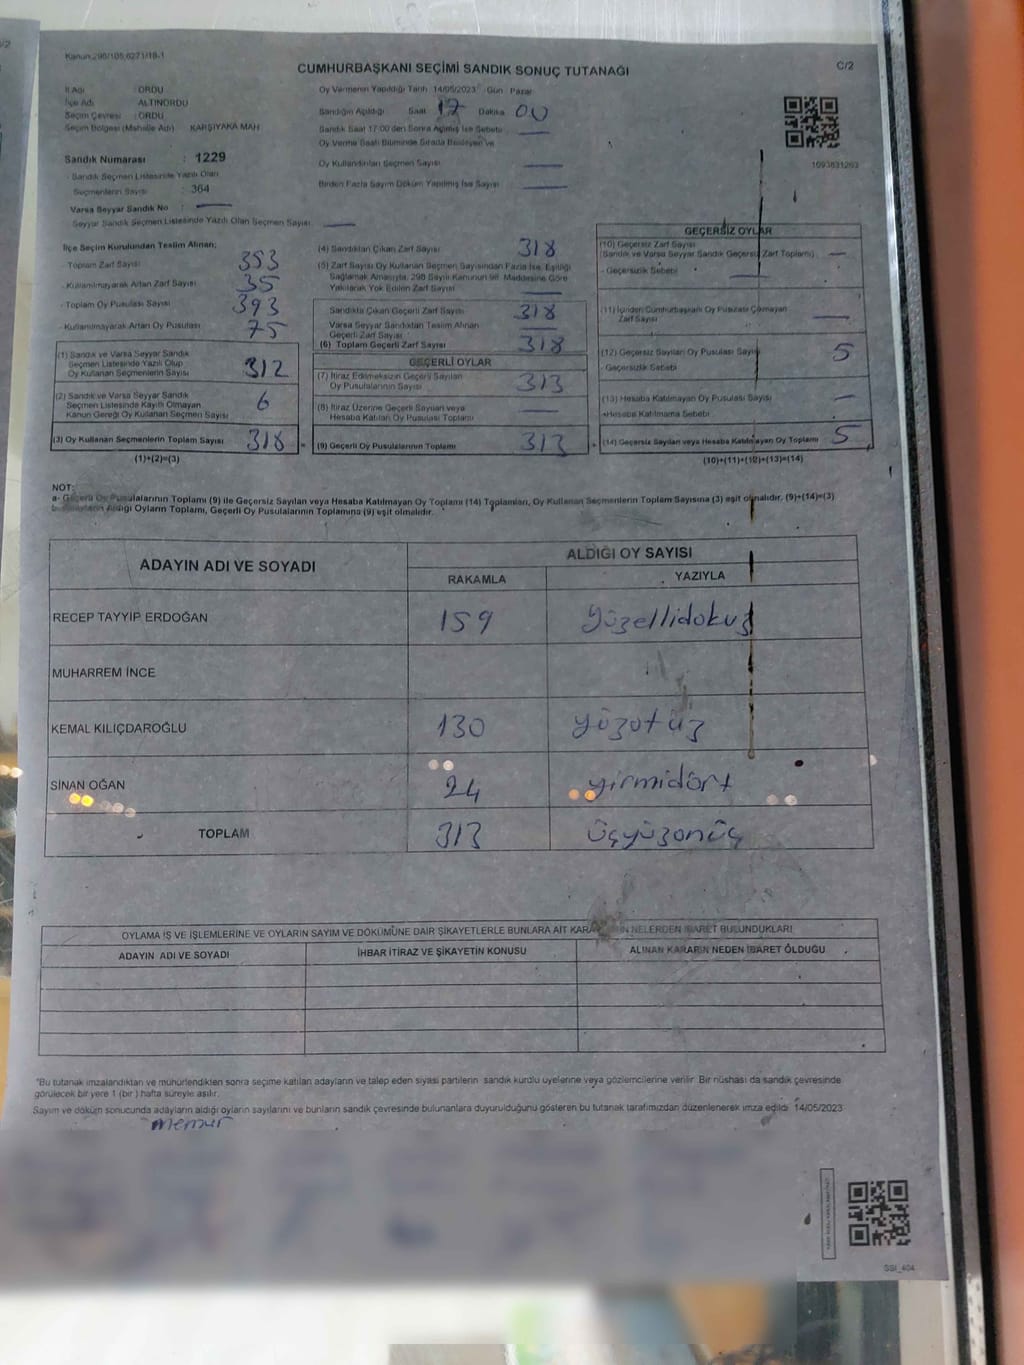 Kanun:298/105,6271/18-1
C/2
CUMHURBAŞKANI SEÇİMİ SANDIK SONUÇ TUTANAĞI
İl Adı : ORDU
İlçe Adı : ALTINORDU
Seçim Çevresi : ORDU
Seçim Bölgesi (Mahalle Adı) KARŞIYAKA MAH
Sandık Numarası : 1229
- Sandık Seçmen Listesinde Yazılı Olan
Seçmenlerin Sayısı : 364
Varsa Seyyar Sandık No :
Seyyar Sandık Seçmen Listesinde Yazılı Olan Seçmen Sayısı :
Oy Vermenin Yapıldığı Tarih 14/05/2023 Gün Pazar
Sandığın Açıldığı Saat 17 Dakika 00
Sandık Saat 17:00'den Sonra Açılmış İse Sebebi
Oy Verme Saati Bitiminde Sırada Bekleyen ve
Oy Kullandırılan Seçmen Sayısı
Birden Fazla Sayım Döküm Yapılmış İse Sayısı
1093631263
İlçe Seçim Kurulundan Teslim Alınan;
- Toplam Zarf Sayısı 353
- Kullanılmayarak Artan Zarf Sayısı 35
- Toplam Oy Pusulası Sayısı 393
- Kullanılmayarak Artan Oy Pusulası 75
(1) Sandık ve Varsa Seyyar Sandık
Seçmen Listesinde Yazılı Olup
Oy Kullanan Seçmenlerin Sayısı 312
(2) Sandık ve Varsa Seyyar Sandık
Seçmen Listesinde Kayıtlı Olmayan
Kanun Gereği Oy Kullanan Seçmen Sayısı 6
(3) Oy Kullanan Seçmenlerin Toplam Sayısı 318
(1)+(2)=(3)
(4) Sandıktan Çıkan Zarf Sayısı 318
(5) Zarf Sayısı Oy Kullanan Seçmen Sayısından Fazla İse, Eşitliği
Sağlamak Amacıyla, 298 Sayılı Kanunun 98. Maddesine Göre
Yakılarak Yok Edilen Zarf Sayısı
Sandıkta Çıkan Geçerli Zarf Sayısı 318
Varsa Seyyar Sandıktan Teslim Alınan
Geçerli Zarf Sayısı
(6) Toplam Geçerli Zarf Sayısı 318
GEÇERLİ OYLAR
(7) İtiraz Edilmeksizin Geçerli Sayılan
Oy Pusulalarının Sayısı 313
(8) İtiraz Üzerine Geçerli Sayılan veya
Hesaba Katılan Oy Pusulası Toplamı
(9) Geçerli Oy Pusulalarının Toplamı 313
GEÇERSİZ OYLAR
(10) Geçersiz Zarf Sayısı
(Sandık ve Varsa Seyyar Sandık Geçersiz Zarf Toplamı)
- Geçersizlik Sebebi
(11) İçinden Cumhurbaşkanı Oy Pusulası Çıkmayan
Zarf Sayısı
(12) Geçersiz Sayılan Oy Pusulası Sayısı 5
- Geçersizlik Sebebi
(13) Hesaba Katılmayan Oy Pusulası Sayısı
-Hesaba Katılmama Sebebi
(14) Geçersiz Sayılan veya Hesaba Katılmayan Oy Toplamı 5
(10)+(11)+(12)+(13)=(14)
NOT:
a- Geçerli Oy Pusulalarının Toplamı (9) ile Geçersiz Sayılan veya Hesaba Katılmayan Oy Toplamı (14) Toplamları, Oy Kullanan Seçmenlerin Toplam Sayısına (3) eşit olmalıdır. (9)+(14)=(3)
b- Adayların Aldığı Oyların Toplamı, Geçerli Oy Pusulalarının Toplamına (9) eşit olmalıdır.
ADAYIN ADI VE SOYADI
ALDIĞI OY SAYISI
RAKAMLA YAZIYLA
RECEP TAYYİP ERDOĞAN 159 yüzellidokuz
MUHARREM İNCE
KEMAL KILIÇDAROĞLU 130 yüzotuz
SİNAN OĞAN 24 yirmidört
TOPLAM 313 üçyüzonüç
OYLAMA İŞ VE İŞLEMLERİNE VE OYLARIN SAYIM VE DÖKÜMÜNE DAİR ŞİKAYETLERLE BUNLARA AİT NELERDEN İBARET BULUNDUKLARI
ADAYIN ADI VE SOYADI İHBAR İTİRAZ VE ŞİKAYETİN KONUSU ALINAN KARARIN NEDEN İBARET OLDUĞU
"Bu tutanak imzalandıktan ve mühürlendikten sonra seçime katılan adayların ve talep eden siyasi partilerin sandık kurulu üyelerine veya gözlemcilerine verilir. Bir nüshası da sandık çevresinde
görülecek bir yere 1 (bir ) hafta süreyle asılır.
Sayım ve döküm sonucunda adayların aldığı oyların sayılarını ve bunların sandık çevresinde bulunanlara duyurulduğunu gösteren bu tutanak tarafımızdan düzenlenerek imza edildi. 14/05/2023
memur
SSI_404